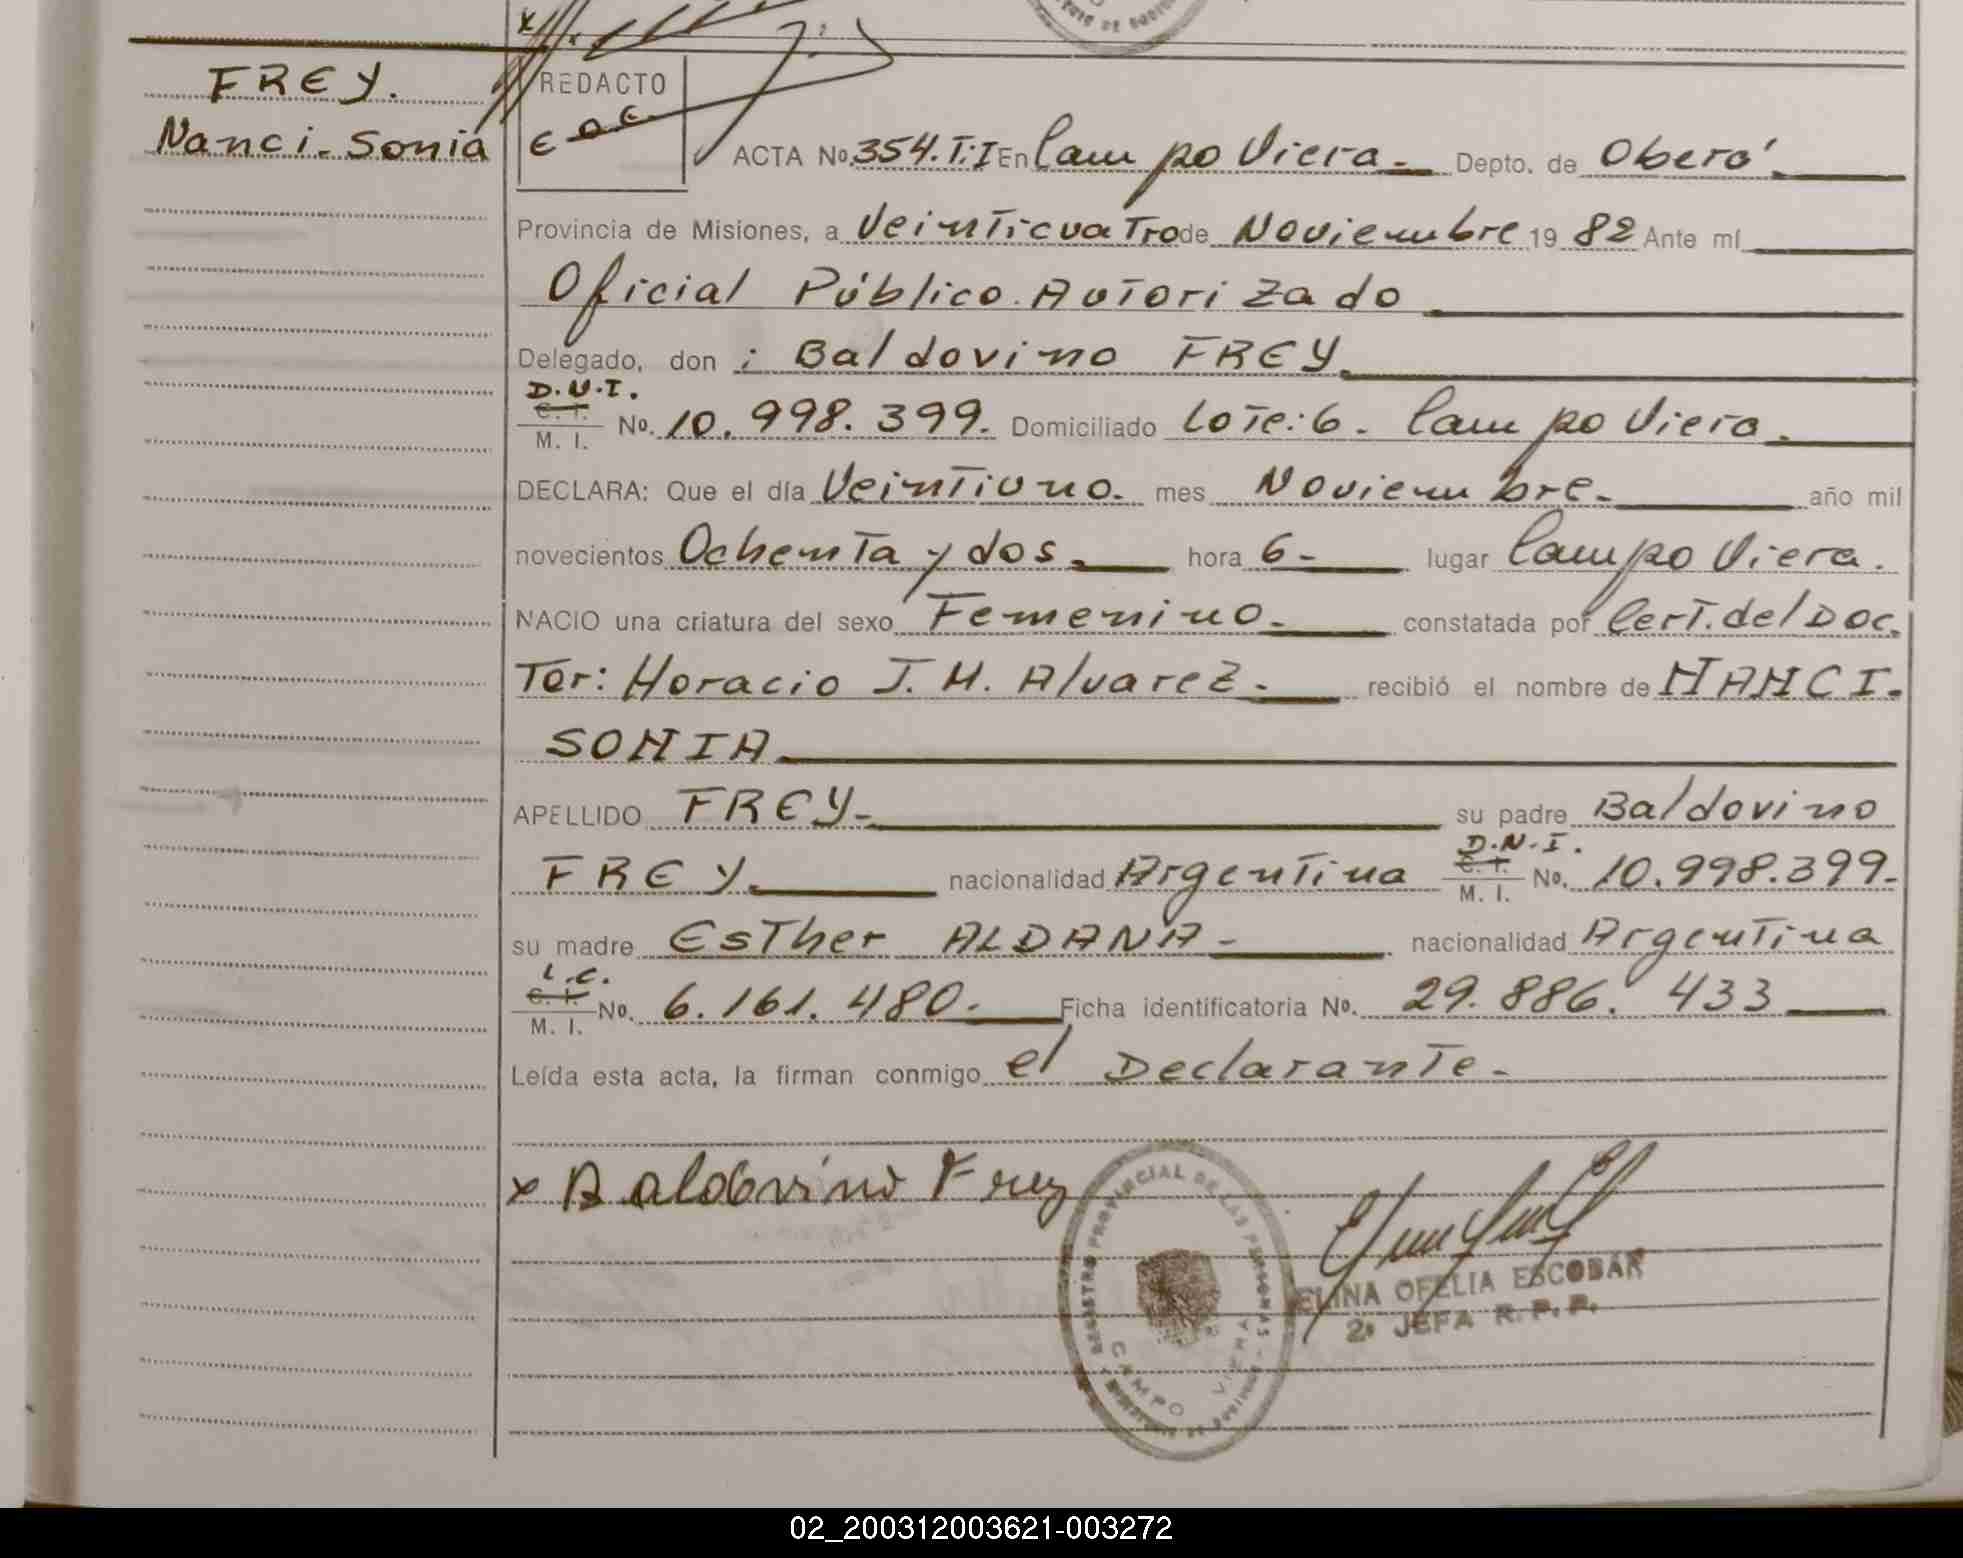 FREY.
Nanci. Sonia
REDACTO
ACTA No. 354. T: I En Campo Viera. Depto. de Oberá.
Provincia de Misiones, a Veinticuatro de Noviembre 19 82 Ante mí
Oficial Público Autorizado
Delegado, don : Baldovino FREY.
D.N.I.
C. I.
M. I. No. 10.998.399. Domiciliado Lote: 6. Campo Viera.
DECLARA: Que el día Veintiuno. mes Noviembre. año mil
novecientos Ochenta y dos. hora 6- lugar Campo Viera.
NACIO una criatura del sexo Femenino. constatada por Cert. del Doc.
Tor: Horacio J. M. Alvarez. recibió el nombre de NANCI.
SONIA
APELLIDO FREY- su padre Baldovino
D.N.I.
FREY. nacionalidad Argentina C. I. M. I. No. 10.998.399.
su madre Esther ALDANA- nacionalidad Argentina
L.C.
C. I.
M. I. No. 6.161.480. Ficha identificatoria No. 29.886.433
Leída esta acta, la firman conmigo el Declarante.
x Baldovino Frey
REGISTRO PROVINCIAL DE LAS PERSONAS
CAMPO VIERA
ELINA OFELIA ESCOBAR
2ª JEFA R. P. P.
02_200312003621-003272